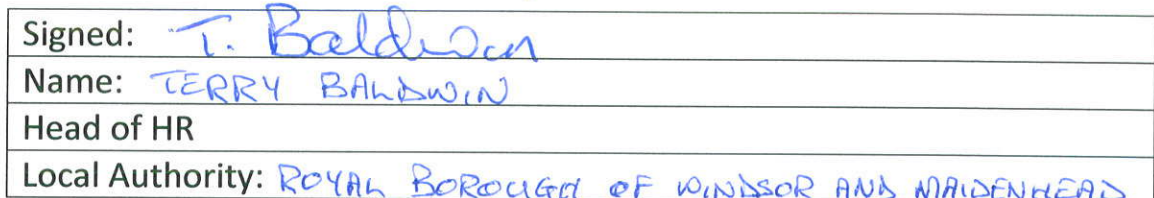 Signed: T. Baldwin
Name: TERRY BALDWIN
Head of HR
Local Authority: ROYAL BOROUGH OF WINDSOR AND MAIDENHEAD